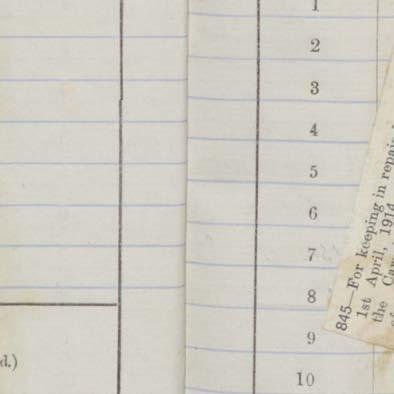 1
2
3
4
5
6
7
8
9
10
d.)
845—For keeping in repair
1st April, 191
the